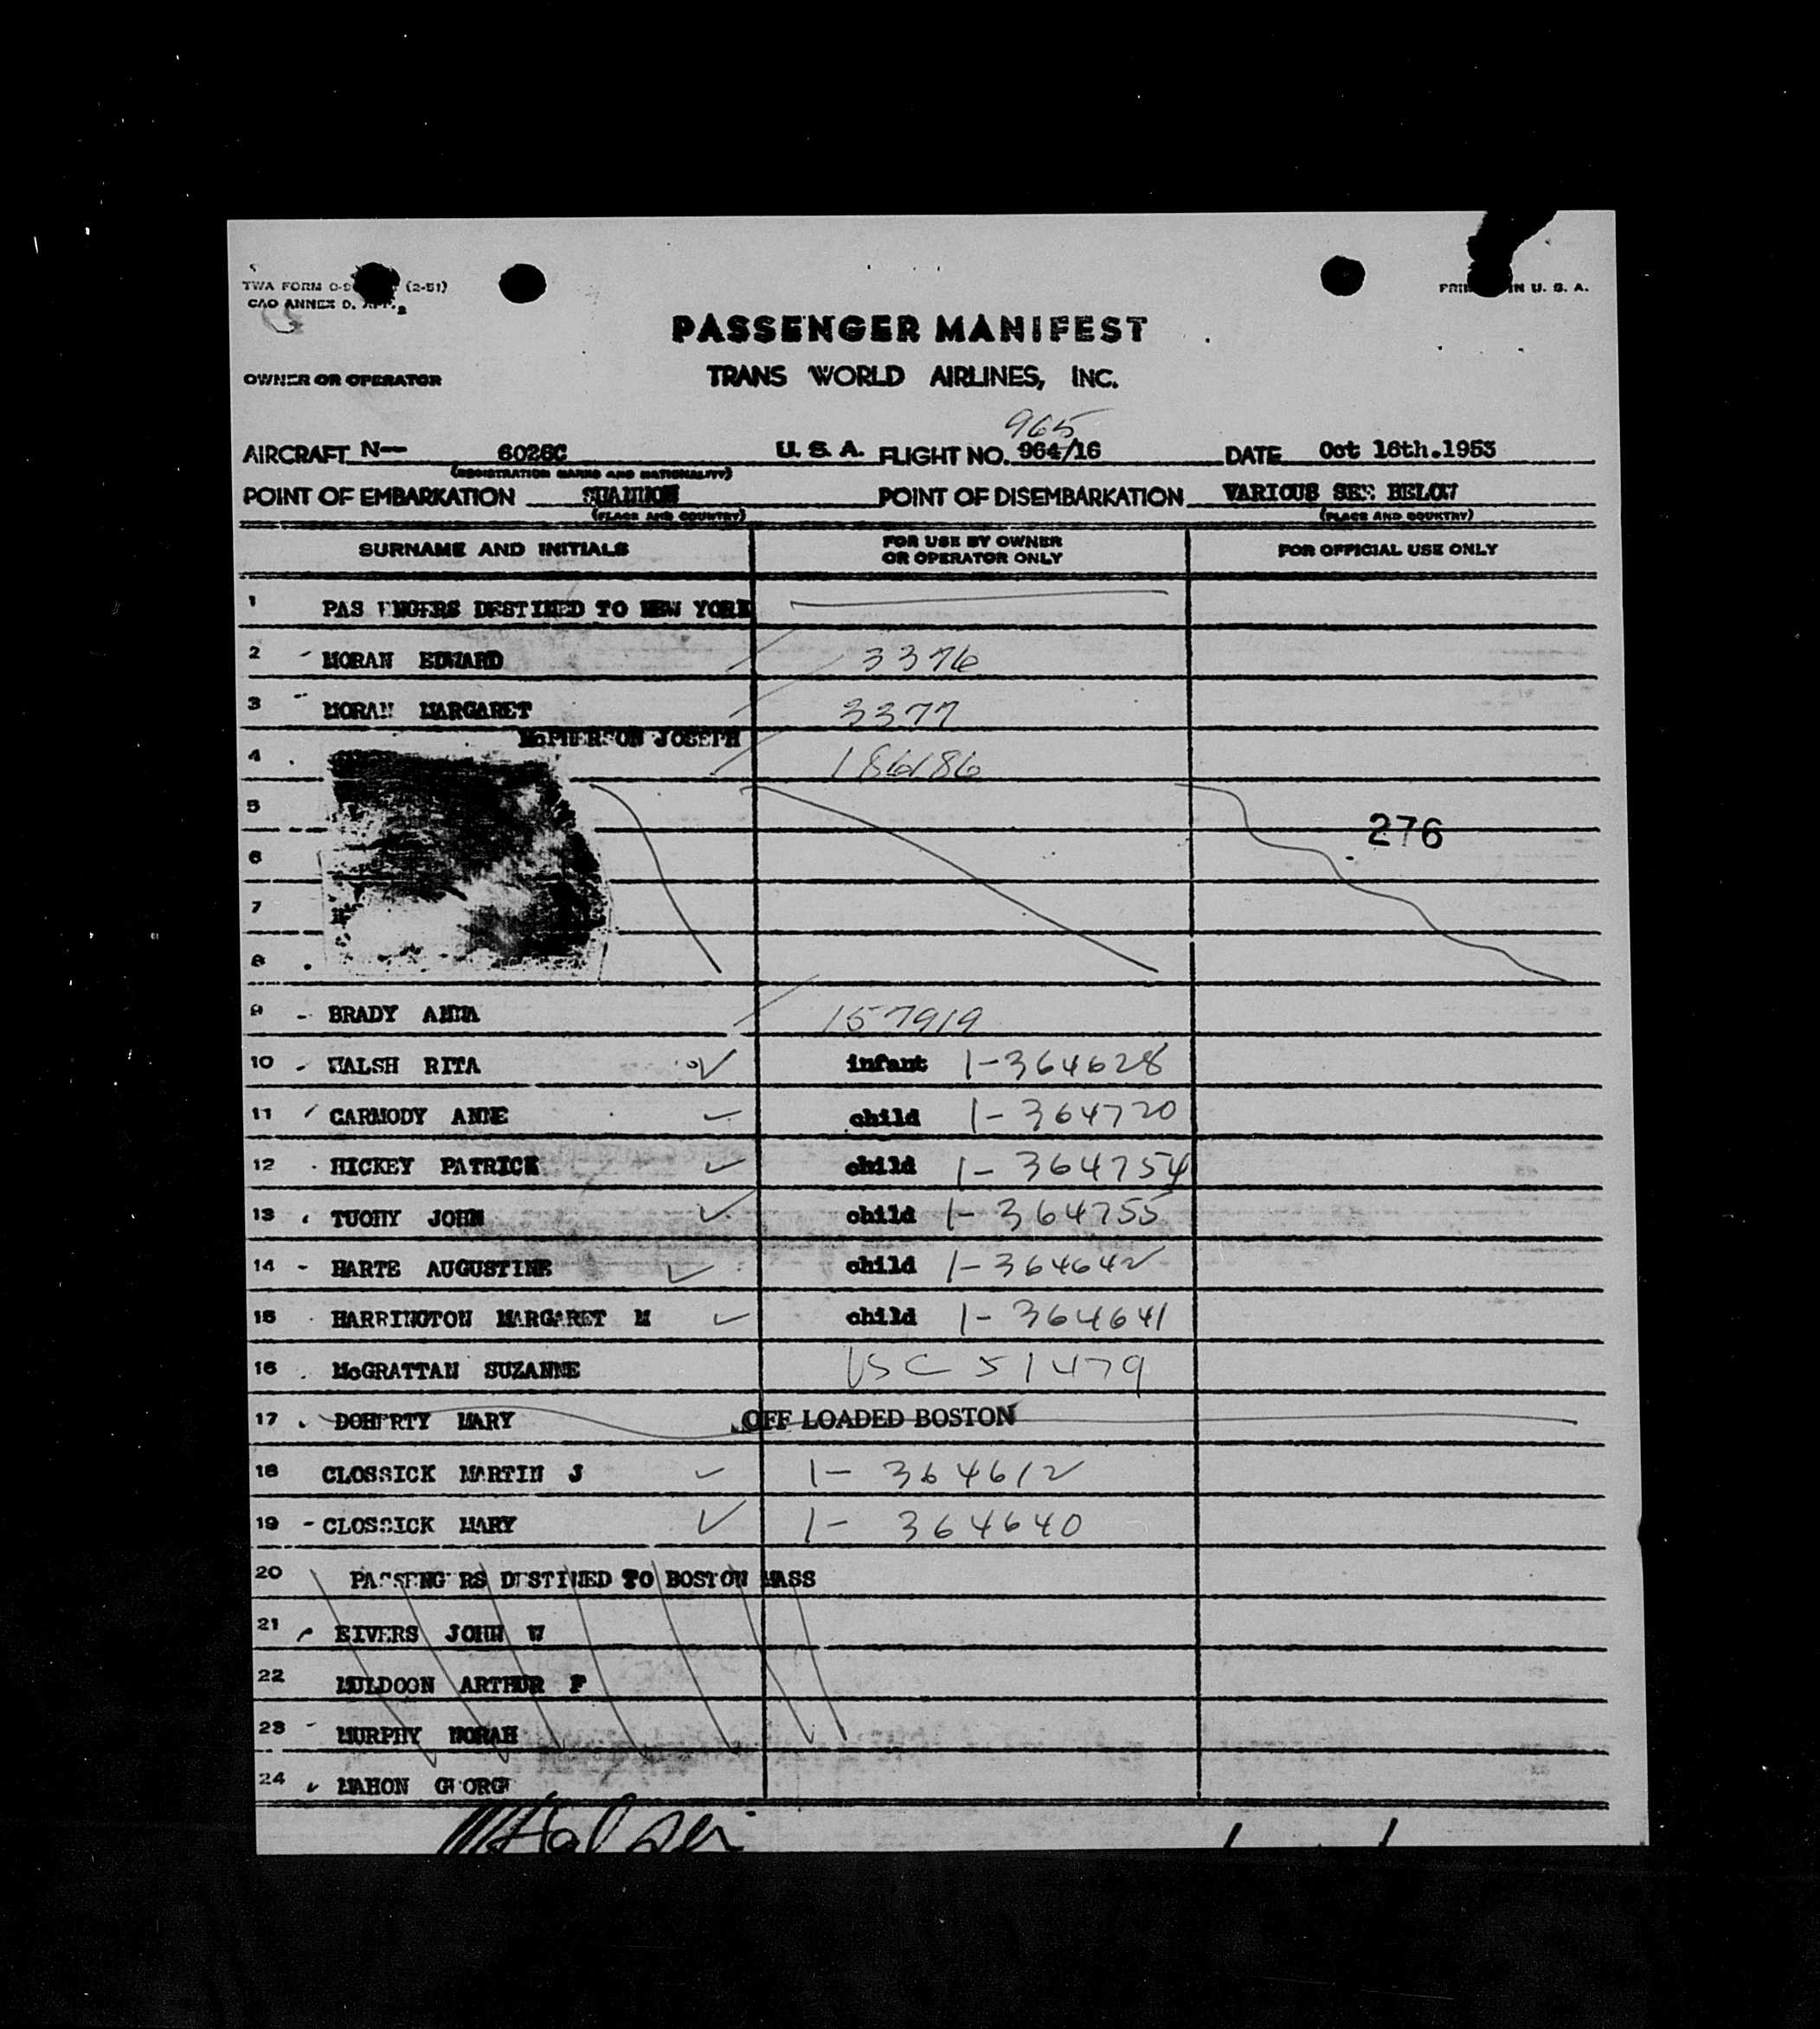 TWA FORM (2-51)
CAO ANNEX D.
PRINTED IN U. S. A.
PASSENGER MANIFEST
OWNER OR OPERATOR TRANS WORLD AIRLINES, INC.
965
AIRCRAFT N-- 6026C U. S. A. FLIGHT NO. 964/16 DATE Oct 16th.1953
(REGISTRATION MARKS AND NATIONALITY)
POINT OF EMBARKATION SHANNON POINT OF DISEMBARKATION VARIOUS SEE BELOW
(PLACE AND COUNTRY) (PLACE AND COUNTRY)
SURNAME AND INITIALS FOR USE BY OWNER OR OPERATOR ONLY FOR OFFICIAL USE ONLY
1 PASSENGERS DESTINED TO NEW YORK
2 MORAN EDWARD 3376
3 MORAN MARGARET 3377
McPHERSON JOSEPH
4 186186
5
276
6
7
8
9 BRADY ANNA 157919
10 WALSH RITA infant 1-364628
11 CARMODY ANNE child 1-364720
12 HICKEY PATRICK child 1-364754
13 TUOHY JOHN child 1-364755
14 HARTE AUGUSTINE child 1-364642
15 HARRINGTON MARGARET M child 1-364641
16 McGRATTAN SUZANNE USC 51479
17 DOHERTY MARY OFF LOADED BOSTON
18 CLOSSICK MARTIN J 1-364612
19 CLOSSICK MARY 1-364640
20 PASSENGERS DESTINED TO BOSTON MASS
21 EIVERS JOHN W
22 MULDOON ARTHUR F
23 MURPHY NORAH
24 MAHON GEORGE